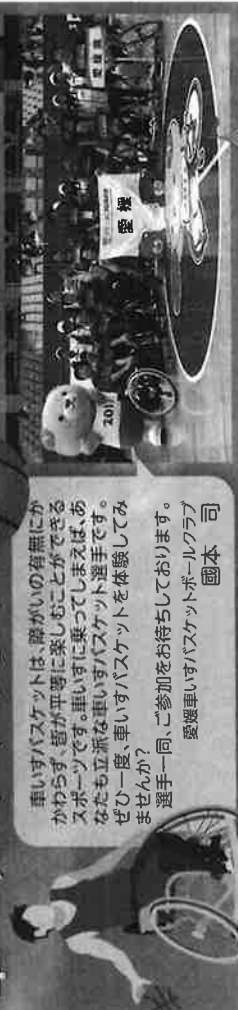 車いすバスケットは、障がいの有無にか
かわらず、皆が平等に楽しむことができる
スポーツです。車いすに乗ってしまえば、あ
なたも立派な車いすバスケット選手です。
ぜひ一度、車いすバスケットを体験してみ
ませんか?
選手一同、ご参加をお待ちしております。
愛媛車いすバスケットボールクラブ
國本 司
愛媛